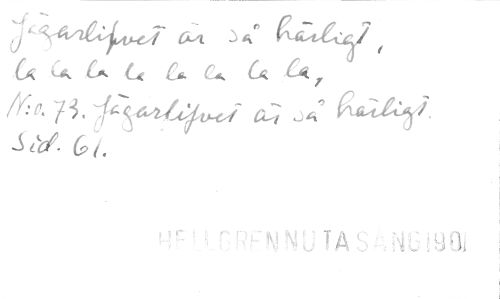 Jägarlifvet är så härligt,
la la la la la la la la,
N:o. 73. Jägarlifvet är så härligt.
Sid. 61.
HELLGRENNUTASÅNG1901